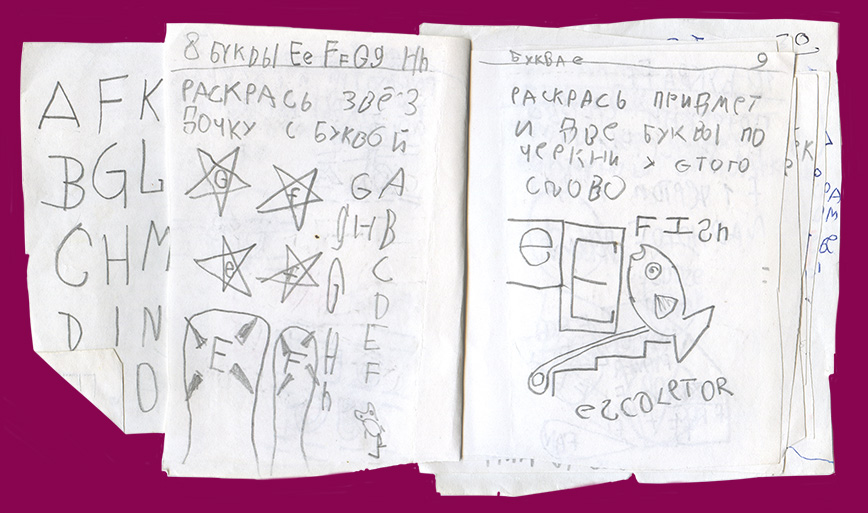 A F K
B G L
C H M
D I N
O
8 БУКВЫ Ee Ff Gg Hh
РАСКРАСЬ ЗВЁЗ
ДОЧКУ С БУКВОЙ
G
f
e
f
G A
g H B
G C
D
E
H F
h
E
F
БУКВА e 9
РАСКРАСЬ ПРИДМЕТ
И ДВЕ БУКВЫ ПО
ЧЕРКНИ У ЄТОГО
СЛОВО
FISh
e
E
eSCOLeTOR